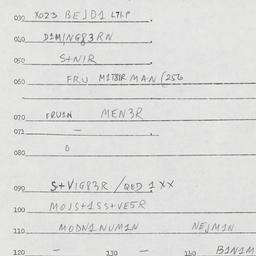 030 X023 BEJD1 LTLP
040 D1MINGB3RN
050 S+NIR
060 FRU M1T8IR MAN (256
070 FRU1N MEN3R
071 -
080 0
090 S+VIGB3R / QED 1XX
100 MOIS+1SS+VE5R
110 MODN1NUM1N NEJM1N
120 - 130 - 140 B1N1M